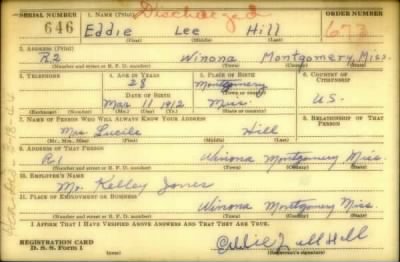 SERIAL NUMBER 1. NAME (Print) Discharged ORDER NUMBER
646 Eddie Lee Hill 673
(First) (Middle) (Last)
2. ADDRESS (Print)
R2 Winona Montgomery, Miss.
(Number and street or R. F. D. number) (Town) (County) (State)
3. TELEPHONE 4. AGE IN YEARS 5. PLACE OF BIRTH 6. COUNTRY OF CITIZENSHIP
28 Montgomery
DATE OF BIRTH (Town or county)
Mar 11 1912 Miss. U.S.
(Exchange) (Number) (Mo.) (Day) (Yr.) (State or country)
7. NAME OF PERSON WHO WILL ALWAYS KNOW YOUR ADDRESS 8. RELATIONSHIP OF THAT PERSON
Mrs Lucile Hill
(Mr., Mrs., Miss) (First) (Middle) (Last)
9. ADDRESS OF THAT PERSON
R1 Winona Montgomery Miss.
(Number and street or R. F. D. number) (Town) (County) (State)
10. EMPLOYER'S NAME
Mr. Kelley Jones
11. PLACE OF EMPLOYMENT OR BUSINESS
Winona Montgomery Miss.
(Number and street or R. F. D. number) (Town) (County) (State)
I AFFIRM THAT I HAVE VERIFIED ABOVE ANSWERS AND THAT THEY ARE TRUE.
REGISTRATION CARD
D. S. S. Form 1 Eddie Lee Hill
(Registrant's signature)